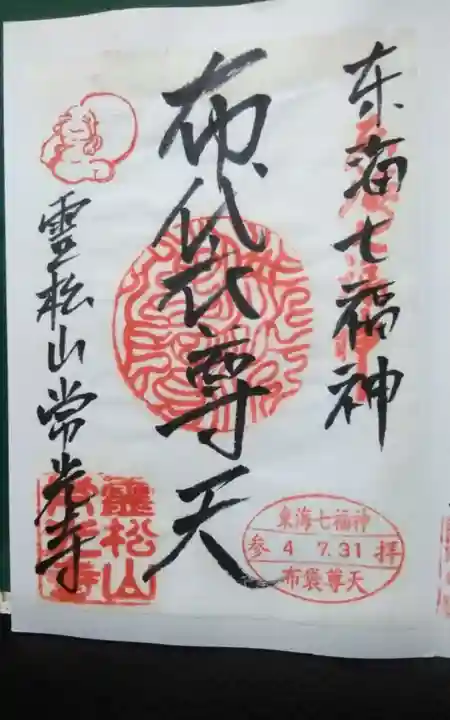 東海七福神
布袋尊天
霊松山常光寺
靈松山
常光寺
東海七福神
参 4 7.31 拝
布袋尊天